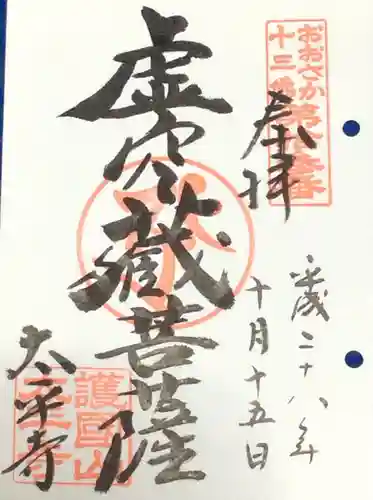 おおさか十三佛
第十三番
奉拝
平成二十八年
十月十五日
虚空蔵菩薩
太平寺
護国山
太平寺